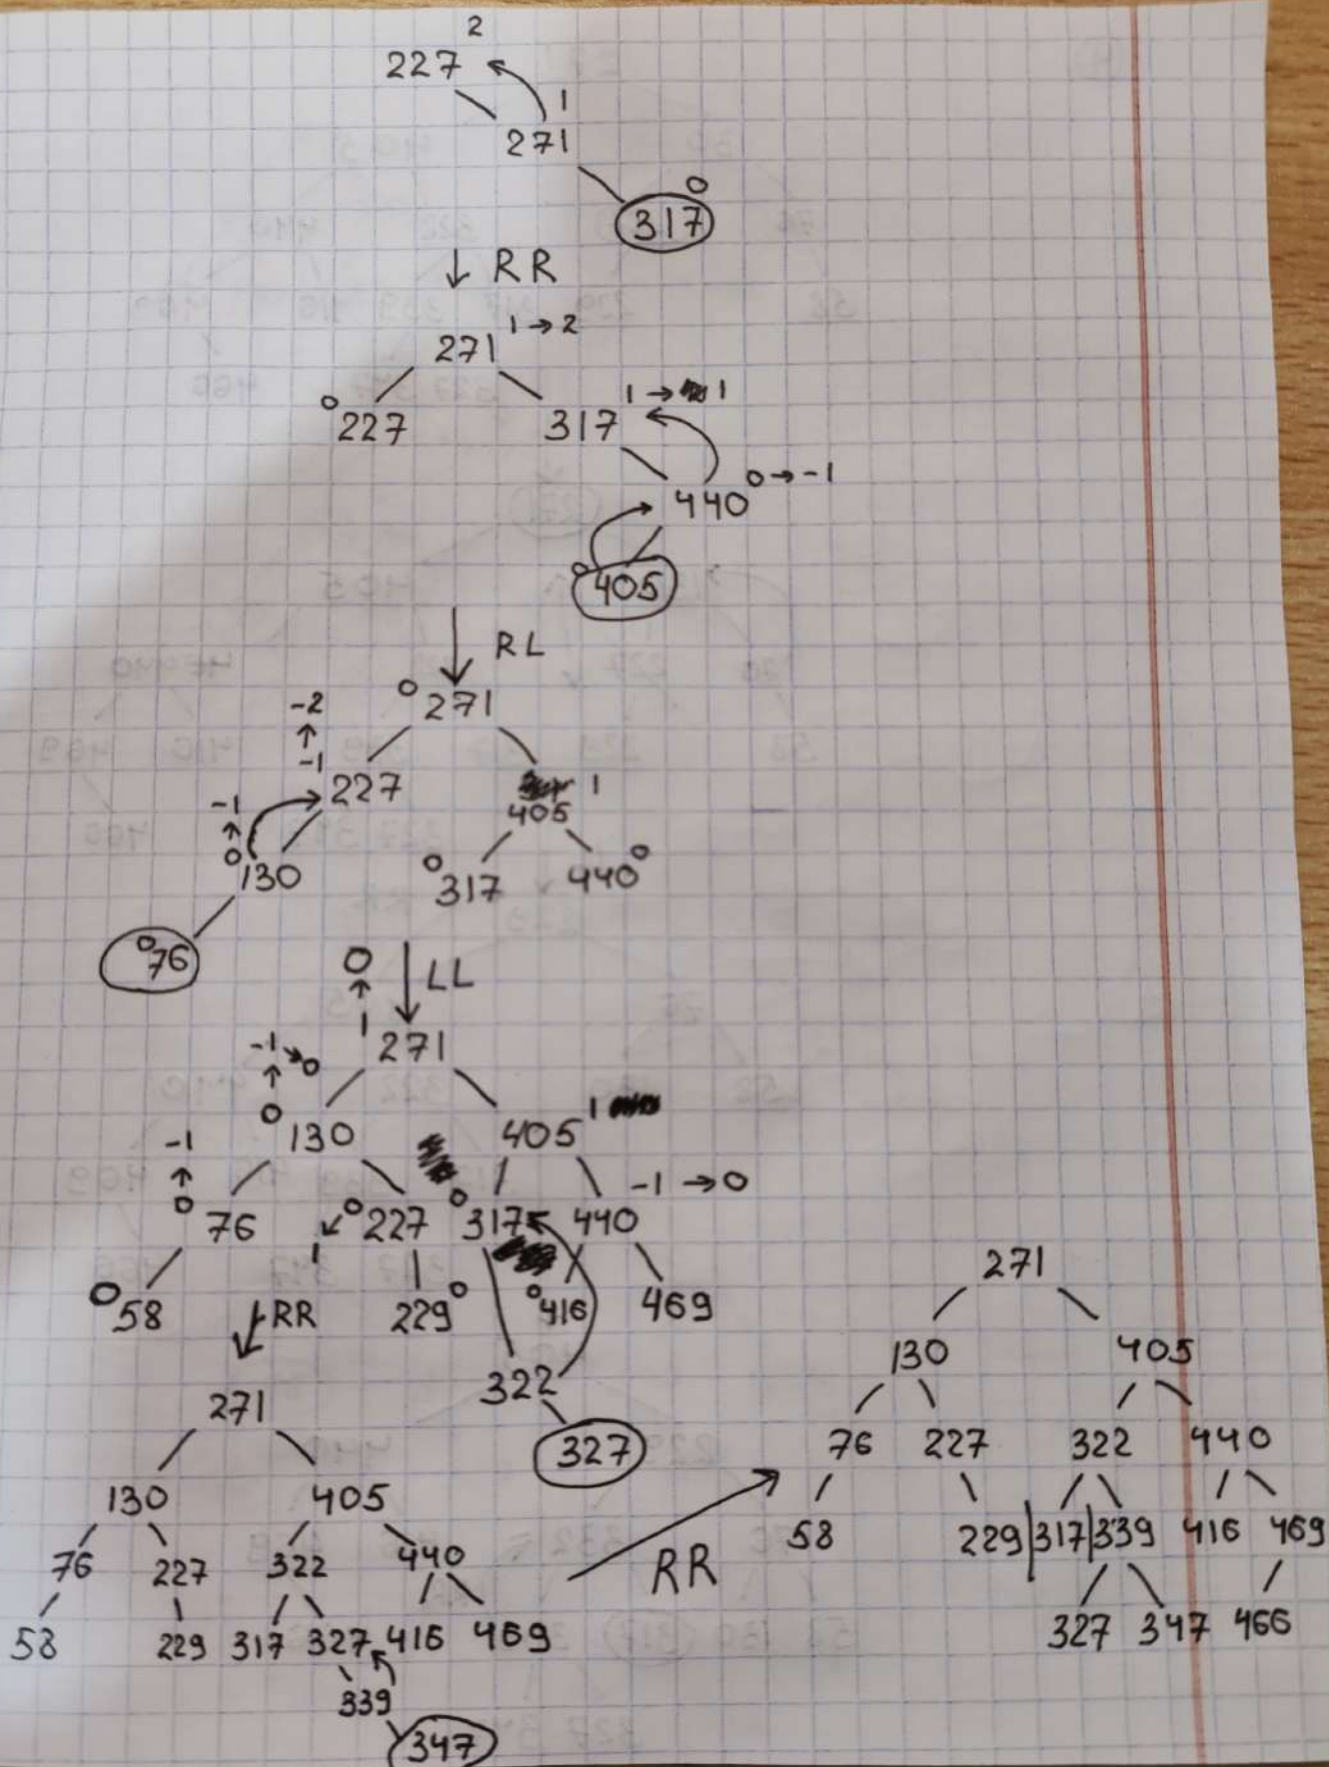 2
227
1
271
0
317
↓ RR
271 1 → 2
0 227 317 1 → 1
440 0 → -1
0 405
↓ RL
0 271
-2
↑
-1 227 1
405
-1
↑
0 130 0 317 440 0
0 76
↓ LL
0
↑
1 271
-1 → 0
↑
0 130 405 1
-1
↑
0 76 0 227 0 317 440 -1 → 0
↙
1
0 58 229 0 0 416 469
322
327
↓ RR
271
130 405
76 227 322 440
58 229 317 327 416 469
339
347
→ RR
271
130 405
76 227 322 440
58 229 317 339 416 469
327 347 466